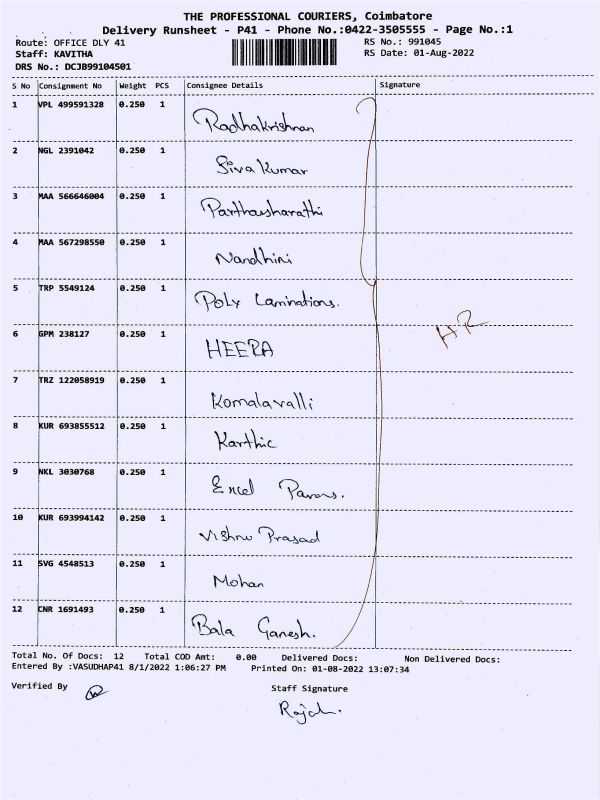 THE PROFESSIONAL COURIERS, Coimbatore
Delivery Runsheet - P41 - Phone No.:0422-3505555 - Page No.:1
Route: OFFICE DLY 41 RS No.: 991045
Staff: KAVITHA RS Date: 01-Aug-2022
DRS No.: DCJB99104501
S No Consignment No Weight PCS Consignee Details Signature
1 VPL 499591328 0.250 1 Radhakrishnan
2 NGL 2391042 0.250 1 Siva Kumar
3 MAA 566646004 0.250 1 Parthausharathi
4 MAA 567298550 0.250 1 Nandhini
5 TRP 5549124 0.250 1 Poly Laminations.
HR
6 GPM 238127 0.250 1 HEERA
7 TRZ 122058919 0.250 1 Komalavalli
8 KUR 693855512 0.250 1 Karthic
9 NKL 3030768 0.250 1
10 KUR 693994142 0.250 1 Vishnu Prasad
11 SVG 4548513 0.250 1 Mohan
12 CNR 1691493 0.250 1 Bala Ganesh.
Total No. Of Docs: 12 Total COD Amt: 0.00 Delivered Docs: Non Delivered Docs:
Entered By :VASUDHAP41 8/1/2022 1:06:27 PM Printed On: 01-08-2022 13:07:34
Verified By Staff Signature